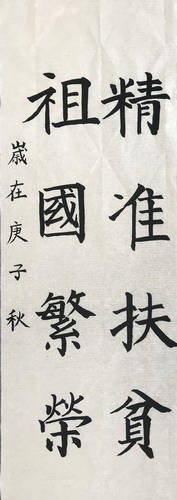 精准扶貧
祖國繁榮
歲在庚子秋